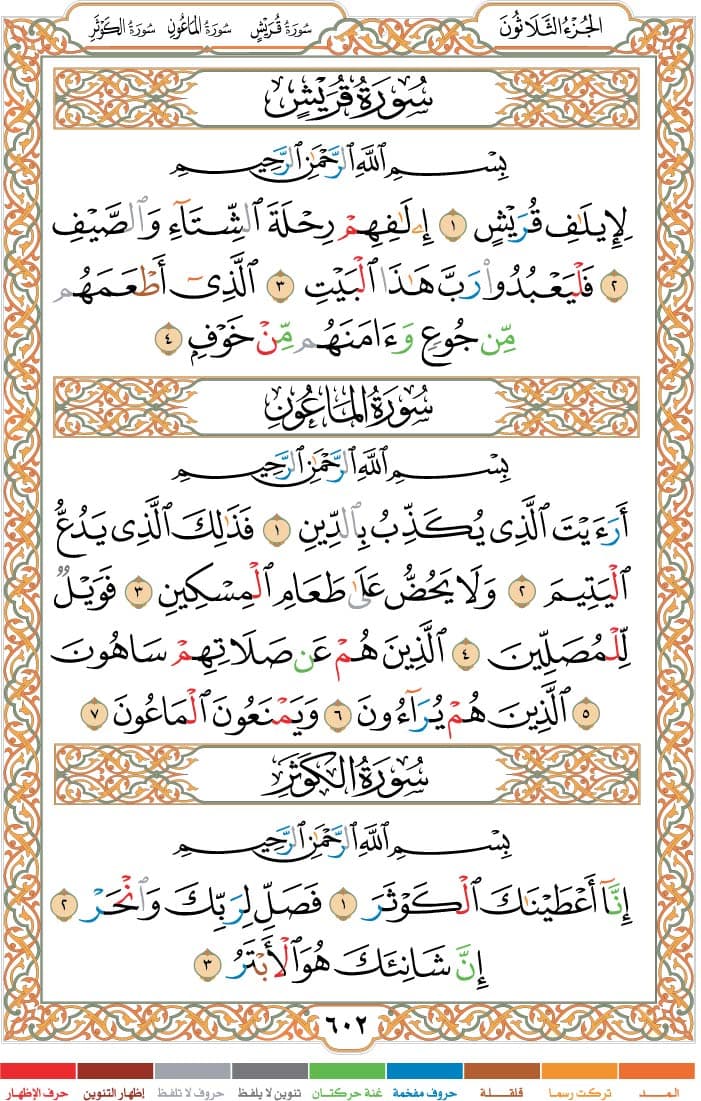 الجزء الثلاثون
سورة قريش سورة الماعون سورة الكوثر
سُورَةُ قُرَيْشٍ
بِسْمِ ٱللَّهِ ٱلرَّحْمَٰنِ ٱلرَّحِيمِ
لِإِيلَٰفِ قُرَيْشٍ ١ إِۦلَٰفِهِمْ رِحْلَةَ ٱلشِّتَآءِ وَٱلصَّيْفِ
٢ فَلْيَعْبُدُوا۟ رَبَّ هَٰذَا ٱلْبَيْتِ ٣ ٱلَّذِىٓ أَطْعَمَهُم
مِّن جُوعٍ وَءَامَنَهُم مِّنْ خَوْفٍ ٤
سُورَةُ المَاعُونِ
بِسْمِ ٱللَّهِ ٱلرَّحْمَٰنِ ٱلرَّحِيمِ
أَرَءَيْتَ ٱلَّذِى يُكَذِّبُ بِٱلدِّينِ ١ فَذَٰلِكَ ٱلَّذِى يَدُعُّ
ٱلْيَتِيمَ ٢ وَلَا يَحُضُّ عَلَىٰ طَعَامِ ٱلْمِسْكِينِ ٣ فَوَيْلٌ
لِّلْمُصَلِّينَ ٤ ٱلَّذِينَ هُمْ عَن صَلَاتِهِمْ سَاهُونَ
٥ ٱلَّذِينَ هُمْ يُرَآءُونَ ٦ وَيَمْنَعُونَ ٱلْمَاعُونَ ٧
سُورَةُ الكَوْثَرِ
بِسْمِ ٱللَّهِ ٱلرَّحْمَٰنِ ٱلرَّحِيمِ
إِنَّآ أَعْطَيْنَٰكَ ٱلْكَوْثَرَ ١ فَصَلِّ لِرَبِّكَ وَٱنْحَرْ ٢
إِنَّ شَانِئَكَ هُوَ ٱلْأَبْتَرُ ٣
٦٠٢
المــد تركت رسما قلقلة حروف مفخمة غنة حركتان تنوين لا يلفظ حروف لا تلفظ إظهار التنوين حرف الإظهار